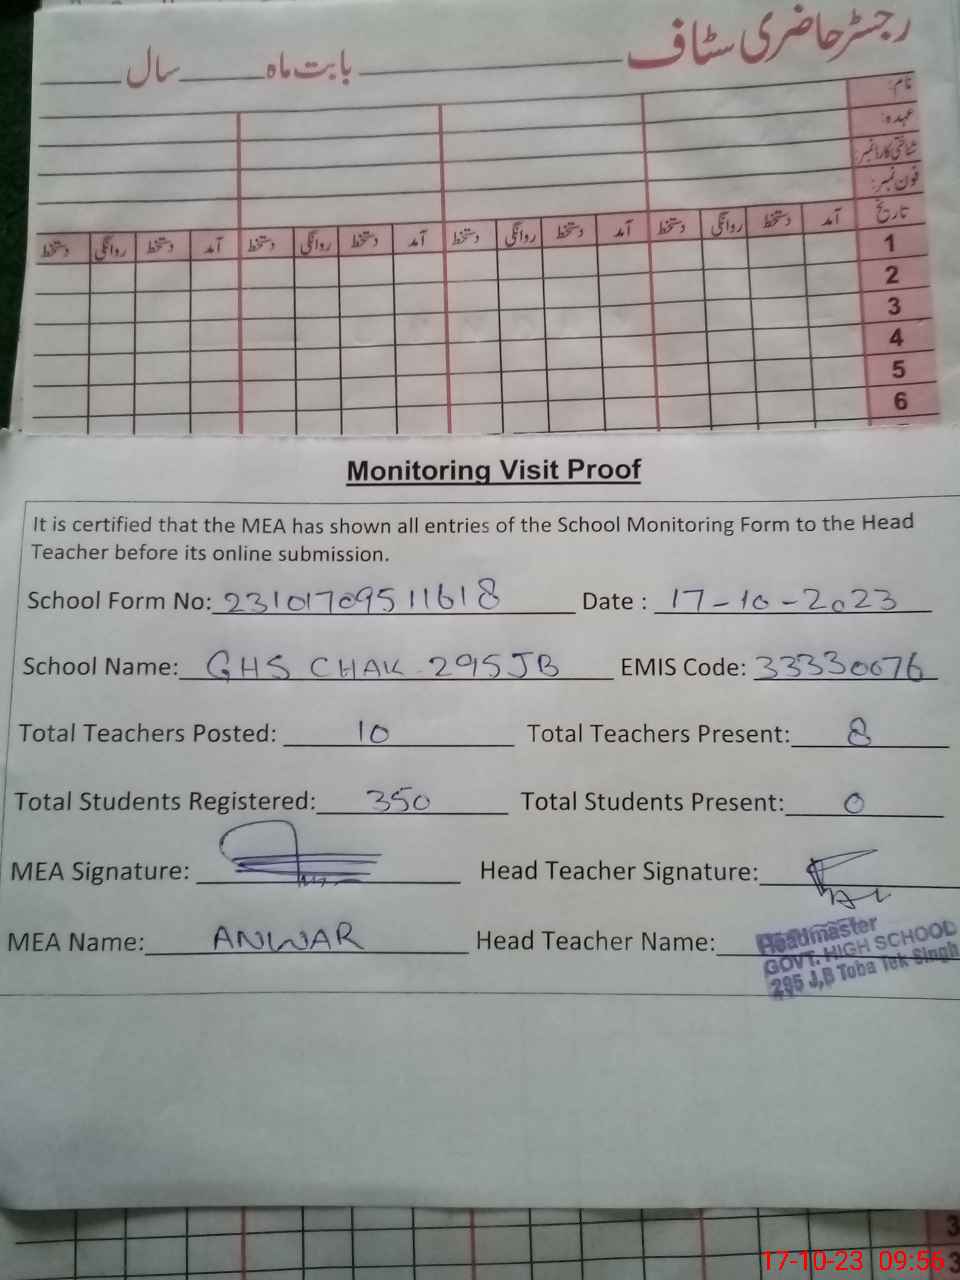 رجسٹر حاضری سٹاف بابت ماہ سال
نام:
عہدہ:
شناختی کارڈ نمبر:
فون نمبر:
تاریخ آمد دستخط روانگی دستخط آمد دستخط روانگی دستخط آمد دستخط روانگی دستخط آمد دستخط روانگی دستخط
1
2
3
4
5
6
Monitoring Visit Proof
It is certified that the MEA has shown all entries of the School Monitoring Form to the Head
Teacher before its online submission.
School Form No: 23101709511618 Date : 17-10-2023
School Name: GHS CHAK 295JB EMIS Code: 33330076
Total Teachers Posted: 10 Total Teachers Present: 8
Total Students Registered: 350 Total Students Present: 0
MEA Signature: Head Teacher Signature:
MEA Name: ANWAR Head Teacher Name:
Headmaster
GOVT. HIGH SCHOOL
295 J,B Toba Tek Singh
17-10-23 09:56